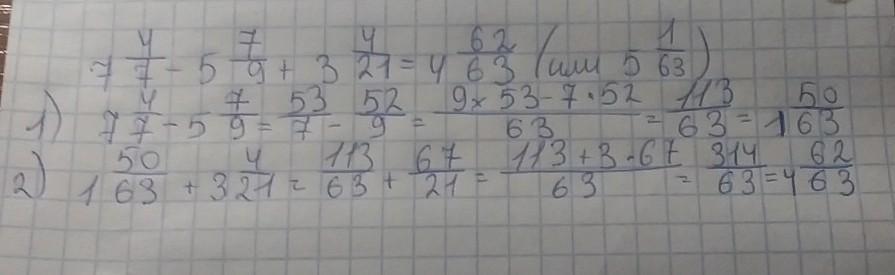 7 4/7 - 5 7/9 + 3 4/21 = 4 62/63 (или 5 1/63)
1) 7 4/7 - 5 7/9 = 53/7 - 52/9 = (9 × 53 - 7 · 52)/63 = 113/63 = 1 50/63
2) 1 50/63 + 3 4/21 = 113/63 + 67/21 = (113 + 3 · 67)/63 = 314/63 = 4 62/63